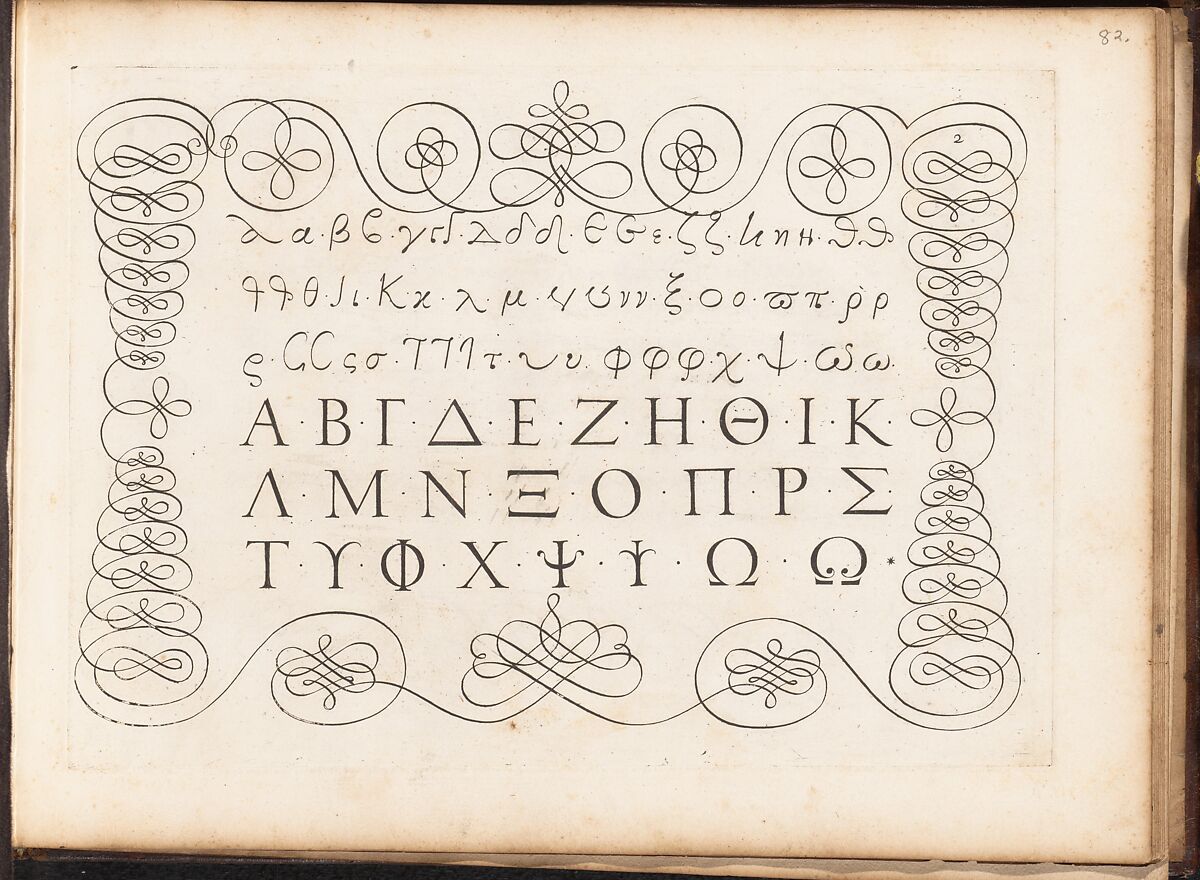 82.
2
α α · β ϐ · γ г · Δ δ δ · Є Є ε · ζ ζ · η η н · ϑ ϑ
ϑ ϑ θ · ι ι · Κ κ · λ · μ · ν υ ν ν · ξ · Ο ο · ϖ π · ρ ρ
ρ · C C ς σ · Τ Τ Τ τ · υ υ · φ φ φ · χ · ψ · ω ω
Α · Β · Γ · Δ · Ε · Ζ · Η · Θ · Ι · Κ ·
Λ · Μ · Ν · Ξ · Ο · Π · Ρ · Σ
Τ · ϒ · Φ · Χ · Ψ · ϒ · Ω · Ω *